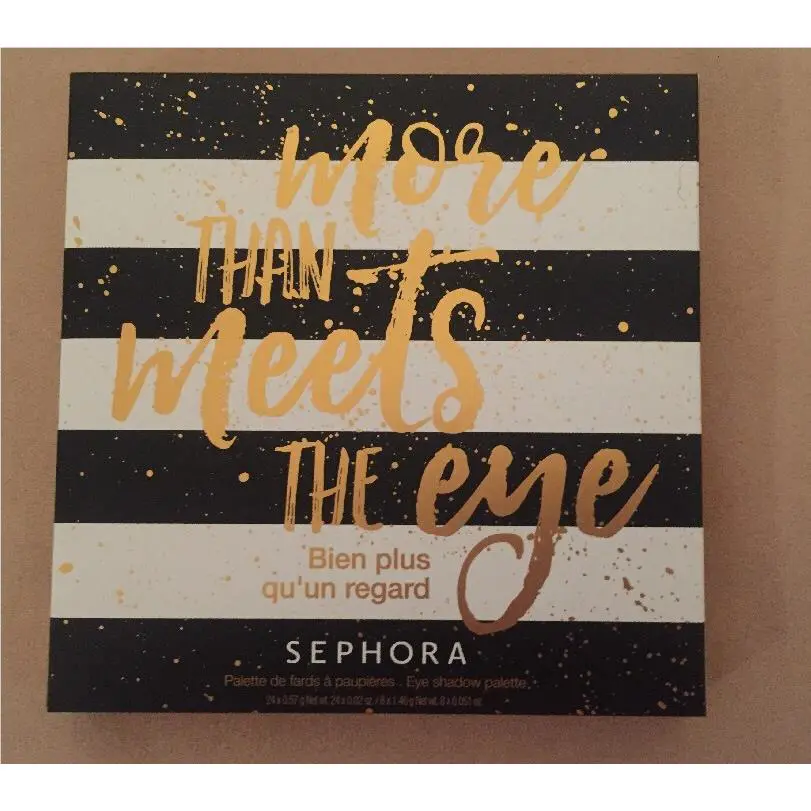 more
THAN
meets
THE eye
Bien plus
qu'un regard
SEPHORA
Palette de fards à paupières . Eye shadow palette
24 x 0.57 g Net wt. 24 x 0.02 oz / 8 x 1.46 g Net wt. 8 x 0.051 oz